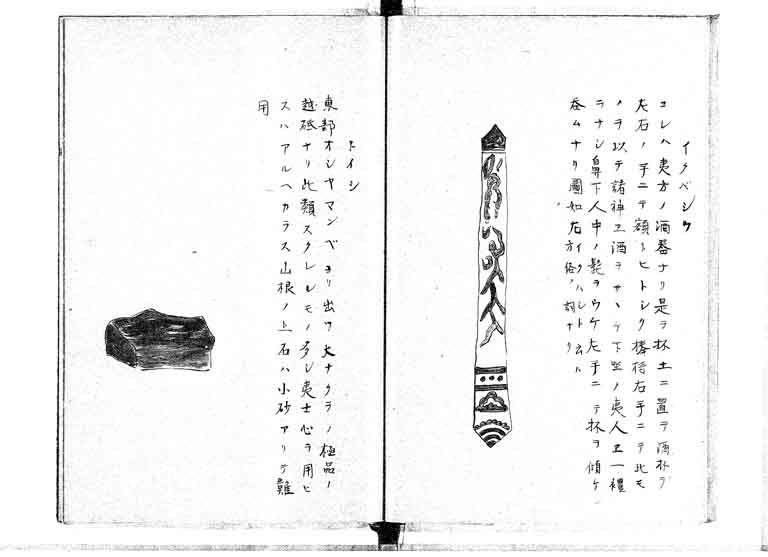 イクバシウ
コレハ夷方ノ酒器ナリ是ヲ杯土ニ置テ酒杯ヲ
左右ノ手ニテ額トヒトシク捧信右手ニテ此モ
ノヲ以テ諸神エ酒ヲサヽケ下坐ノ夷人エ一禮
ラナシ鼻下人中ノ髭ヲウケ左手ニテ杯ヲ傾ケ
呑ムナリ圖如左
イクハシトムル
方俗ノ詞ナリ
トイシ
東部オシヤマンベヨリ出ツ大ナクラノ極品ノ
越砥ナリ此類スクレレモノ多シ夷士心ヲ用ヒ
スハアルヘカラス山根ノ上石ハ小砂アリテ難
用